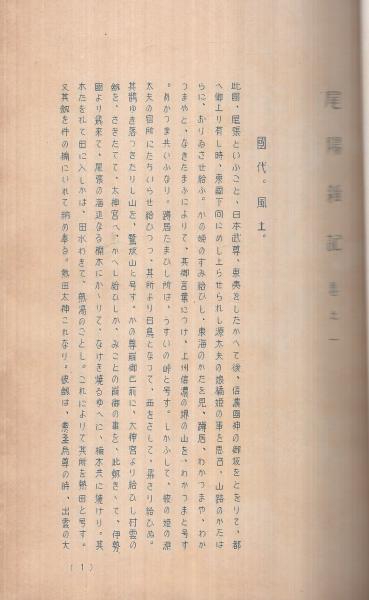 尾陽雜記 巻之一
國代。風土。
此國、尾張といふこと、日本武尊、東夷をしたかへて後、信濃國神の御坂をとをりて、都
へ御上り有し時、東國下向にめし上らせられし源太夫の娘橘姫の事を思召、山路のかたは
らに、おりゐさせ給ふ。かの姫のすみ給ひし、東海のかたを見、蹲居、わかつまや、わか
つまやと、なきたまふによりて、其御言葉につけ、上州信濃の境の山を、わかつまと号す
。あかつま共いふなり。蹲居たまひし所は、うすいの峠と号す。しかふして、彼の姫の源
太夫の宿所にたちいらせ給ひつつ、其所より白鳥となつて、西をさして、飛さり給ひぬ。
其鵠ゆき落つきたりし山を、鷲扶山と号す。かの尊崩御已前に、大神宮より給ひし村雲の
劔を、さきたてて、太神宮へ、かへし給ひしか、みことの崩御の事を、此劔きゝて、伊勢
國より飛来て、尾張の海辺なる橋木にかゝりて、なけき焼るゆへに、橋木共に焼けり。其
木たをれて田に入しかは、田水わきて、熱湯のことし。これによりて其所を熱田と号す。
又其劔を件の橋にいれて納め奉る。熱田太神これなり。彼劔は、素盞烏尊の時、出雲の大
(1)